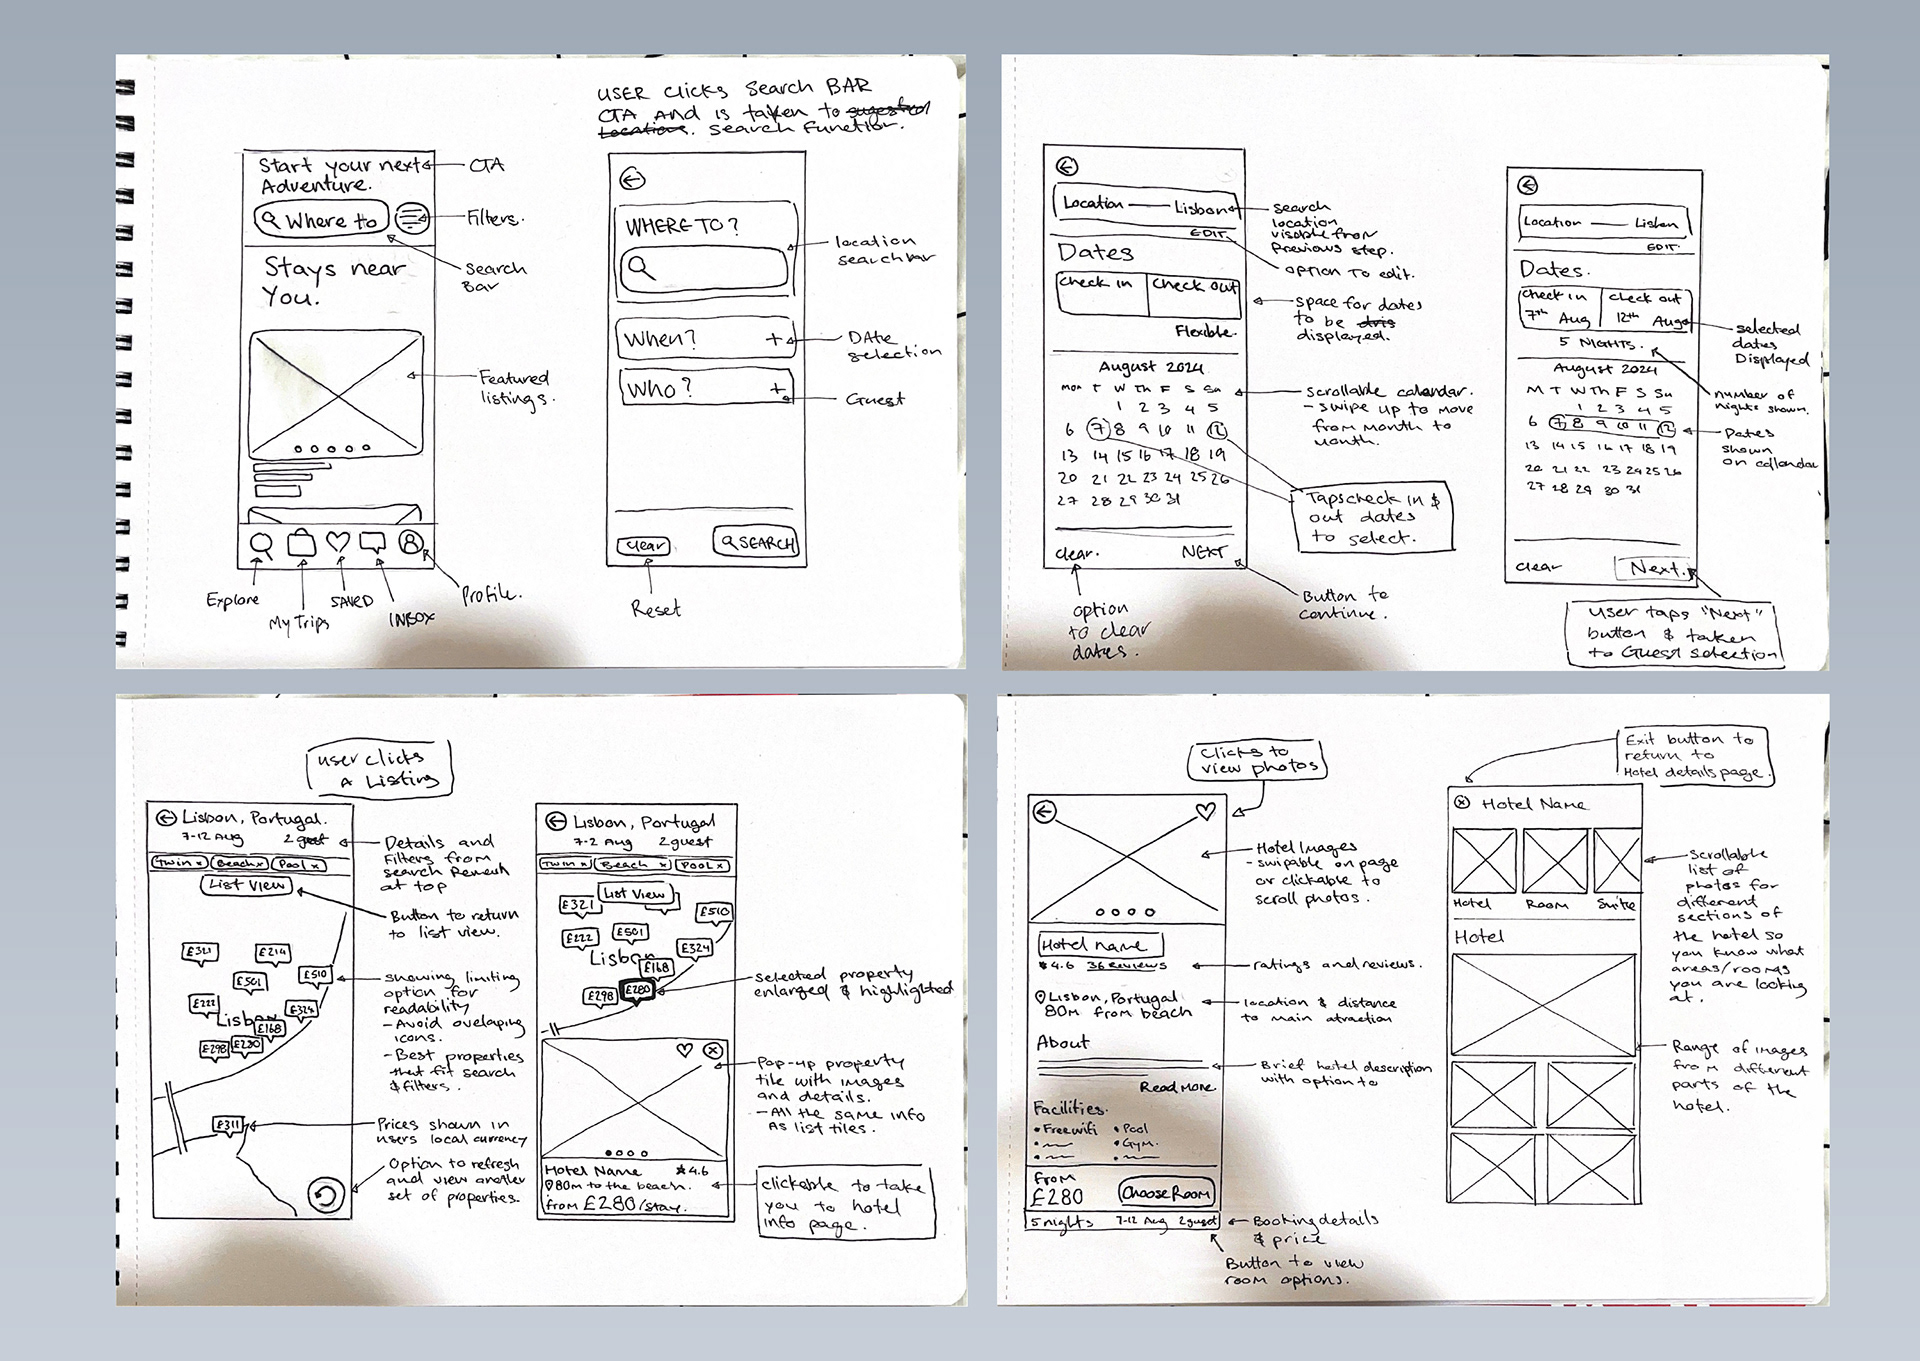 USER clicks Search BAR
CTA AND is taken to sugested
Locations. Search Function.
Start your next
Adventure.
CTA
Where to
Filters.
Search
Bar
Stays near
You.
Featured
listings.
Explore
My Trips
SAVED
INBOX
Profile.
WHERE TO?
location
searchbar
When? +
DAte
selection
Who? +
Guest
Clear
SEARCH
Reset
Location Lisbon
EDIT.
search
location
visible from
Previous step.
option to edit.
Dates
Check in
Check out
Flexible.
space for dates
to be
displayed.
August 2024
Mon T W Th F S Su
1 2 3 4 5
6 7 8 9 10 11 12
13 14 15 16 17 18 19
20 21 22 23 24 25 26
27 28 29 30 31
Scrollable calendar.
- swipe up to move
from month to
month.
Taps check in &
out dates
to select.
clear.
NEXT
option
to clear
dates.
Button to
continue.
Location Lisbon
EDIT.
Dates.
Check in
7th Aug
check out
12th Aug
5 NIGHTS.
selected
dates
Displayed
number of
nights shown.
August 2024
M T W Th F S Su
1 2 3 4 5
6 7 8 9 10 11 12
13 14 15 16 17 18 19
20 21 22 23 24 25 26
27 28 29 30 31
Dates
shown
on callendar
clear
Next.
User taps "Next"
button & taken
to Guest selection
user clicks
A Listing
Lisbon, Portugal.
7-12 Aug 2 guest
Twin x
Beach x
Pool x
List View
Details and
Filters from
search Remain
at top
Button to return
to list view.
£321
£214
£501
£510
£222
£324
Lisbon
£168
£298
£280
£311
showing limiting
option for
readability
- Avoid ovelaping
icons.
- Best properties
that fit search
& filters.
Prices shown in
users local currency
Option to refresh
and view another
set of properties.
Lisbon, Portugal
7-2 Aug 2 guest
Twin x
Beach x
Pool x
List View
£321
£510
£222
£501
£324
Lisbon
£168
£298
£280
selected property
enlarged & highlighted
Pop-up property
tile with images
and details.
- All the same info
As list tiles.
Hotel Name 4.6
80m to the beach.
from £280/stay.
clickable to take
you to hotel
info page.
Clicks to
view photos
Hotel Images
- swipable on page
or clickable to
scroll photos.
Hotel name
4.6 36 Reviews
ratings and reviews.
Lisbon, Portugal
80m from beach
location & distance
to main atraction
About
Read More.
Brief hotel description
with option to
Facilities.
• Free wifi • Pool
• Gym.
From
£280
Choose Room
5 nights 7-12 Aug 2 guest
Booking details
& price
Button to view
room options.
Exit button to
return to
Hotel details page.
Hotel Name
Hotel Room Suite
Scrollable
list of
photos for
different
sections of
the hotel so
you know what
areas/rooms
you are looking
at.
Hotel
Range of images
from different
parts of the
hotel.